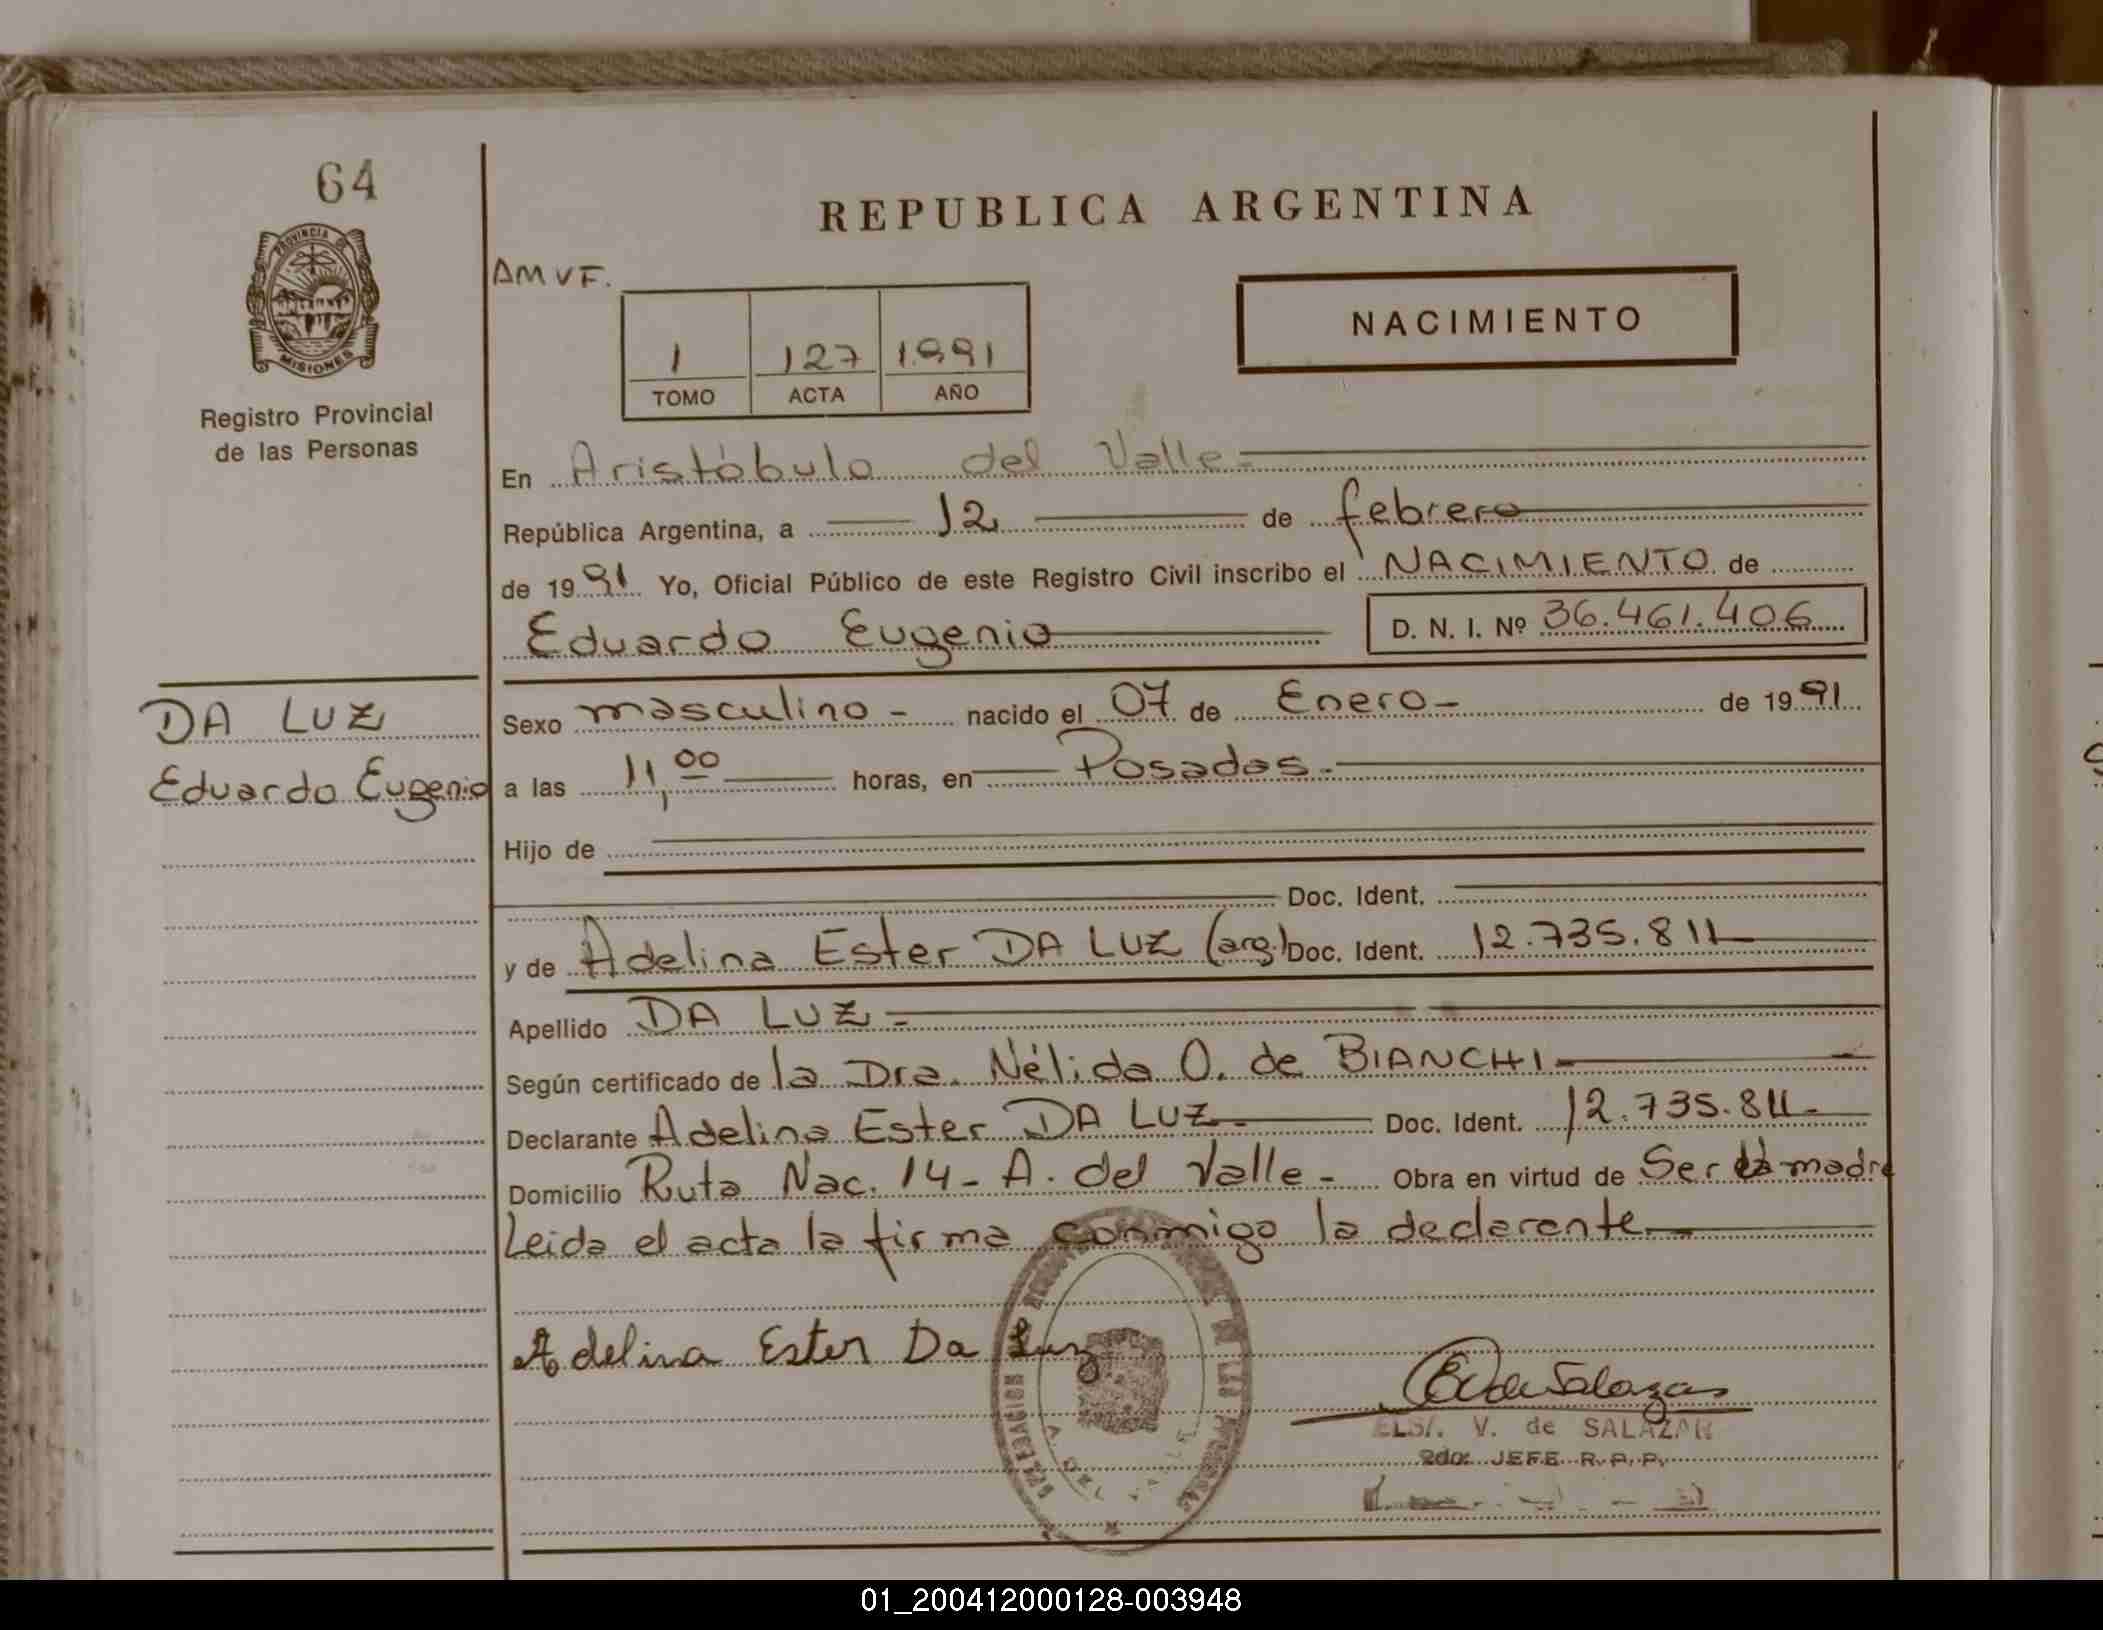 64
PROVINCIA DE
MISIONES
Registro Provincial
de las Personas
REPUBLICA ARGENTINA
AMVF.
1 127 1991
TOMO ACTA AÑO
NACIMIENTO
En Aristóbulo del Valle-
República Argentina, a 12 de febrero
de 1991 Yo, Oficial Público de este Registro Civil inscribo el NACIMIENTO de
Eduardo Eugenio D. N. I. Nº 36.461.406
DA LUZ
Eduardo Eugenio
Sexo masculino - nacido el 07 de Enero- de 1991
a las 11,00 horas, en Posadas.-
Hijo de
Doc. Ident.
y de Adelina Ester DA LUZ (arg.) Doc. Ident. 12.735.811
Apellido DA LUZ-
Según certificado de la Dra. Nélida O. de BIANCHI-
Declarante Adelina Ester DA LUZ.- Doc. Ident. 12.735.811-
Domicilio Ruta Nac. 14- A. del Valle- Obra en virtud de Ser la madre
Leida el acta la firma conmigo la declarante
Adelina Ester Da Luz
DELEGACION DE LAS PERSONAS
A. DEL VALLE
EV de Salazar
V. de SALAZAR
2do. JEFE R. P. P.
01_200412000128-003948